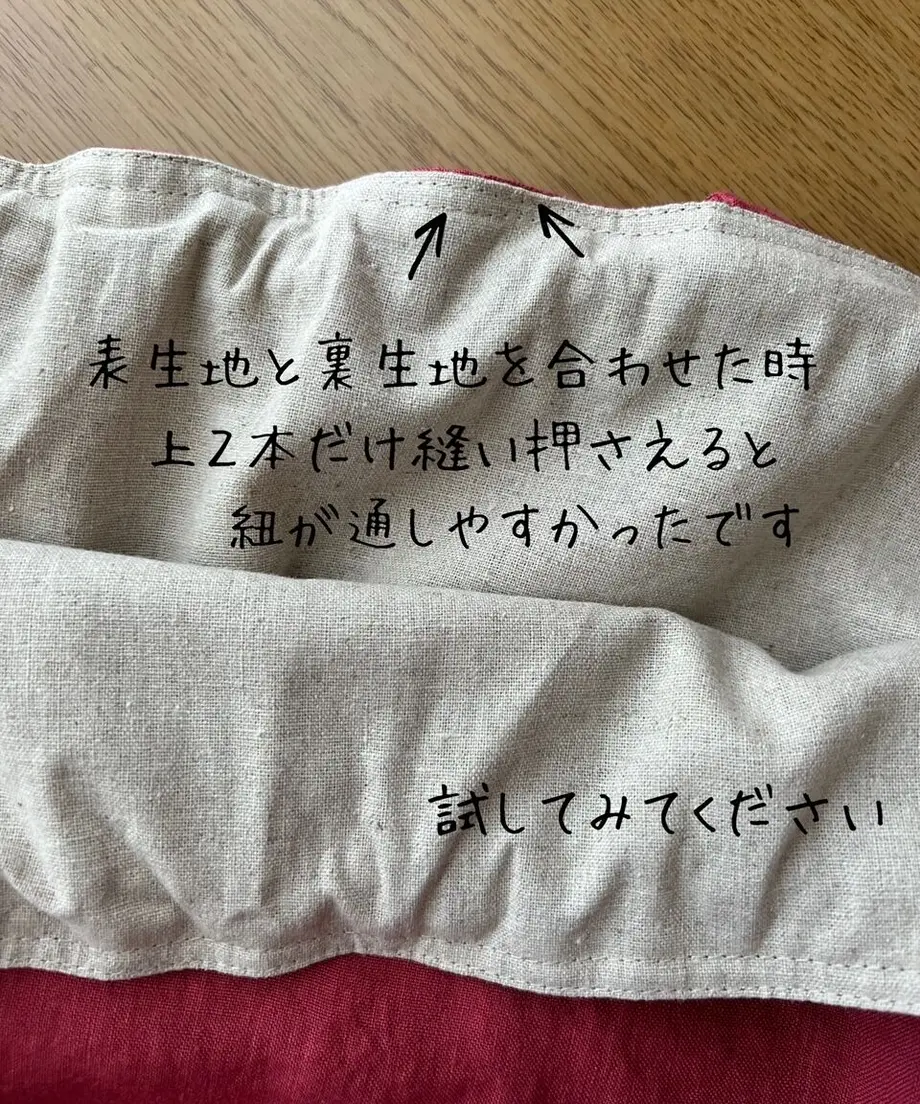 表生地と裏生地を合わせた時
上2本だけ縫い押さえると
紐が通しやすかったです
試してみてください